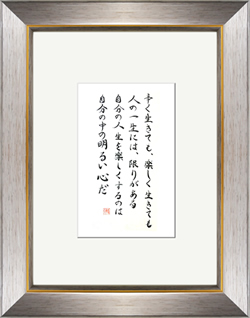 辛く生きても、楽しく生きても
人の一生には、限りがある
自分の人生を楽しくするのは
自分の中の明るい心だ